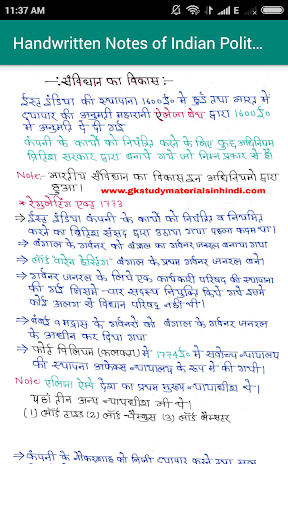 11:37 AM
Handwritten Notes of Indian Polit...
संविधान का विकास
ईस्ट इंडिया की स्थापना 1600 ई० में हुई तथा भारत में
व्यापार की अनुमति महारानी ऐलिजा बेथ द्वारा 1600 ई०
में अनुमति दे दी गई
कंपनी के कार्यो को नियंत्रित करने के लिए कुछ अधिनियम
ब्रिटिश सरकार द्वारा बनाये गये जो निम्न प्रकार से है।
Note:- भारतीय संविधान का विकास इन अधिनियमों द्वारा
हुआ।
www.gkstudymaterialsinhindi.com
* रेगुलेटिंग एक्ट 1773
→ ईस्ट इंडिया कंपनी के कार्यो को नियंत्रित व नियमित
करने का ब्रिटिश संसद द्वारा उठाया गया पहला कदम था।
→ बंगाल के गवर्नर को बंगाल का गवर्नर जनरल बनाया गया
→ लॉर्ड "वारेन हेस्टिंग" बंगाल के प्रथम गवर्नर जनरल बने।
→ गवर्नर जनरल के लिये एक कार्यकारी परिषद की स्थापना
की गई जिसमें चार सदस्य नियुक्ति किये गये इसमें
कोई अलग से विधान परिषद नहीं थी।
→ बंबई व मद्रास के गवर्नरो को बंगाल के गवर्नर जनरल
के अधीन कर दिया गया
→ फोर्ट विलियम (कलकत्ता) में 1774 ई० में सर्वोच्च न्यायालय
की स्थापना अपेक्स न्यायालय के रूप में की गयी।
Note: एलिजा ऐम्पे देश का प्रथम मुख्य न्यायाधीश थे।
यहां तीन अन्य न्यायाधीश भी थे।
(1) लॉर्ड (2) लॉर्ड (3) लॉर्ड
→ कंपनी के नौकरशाह को निजी व्यापार करने तथा